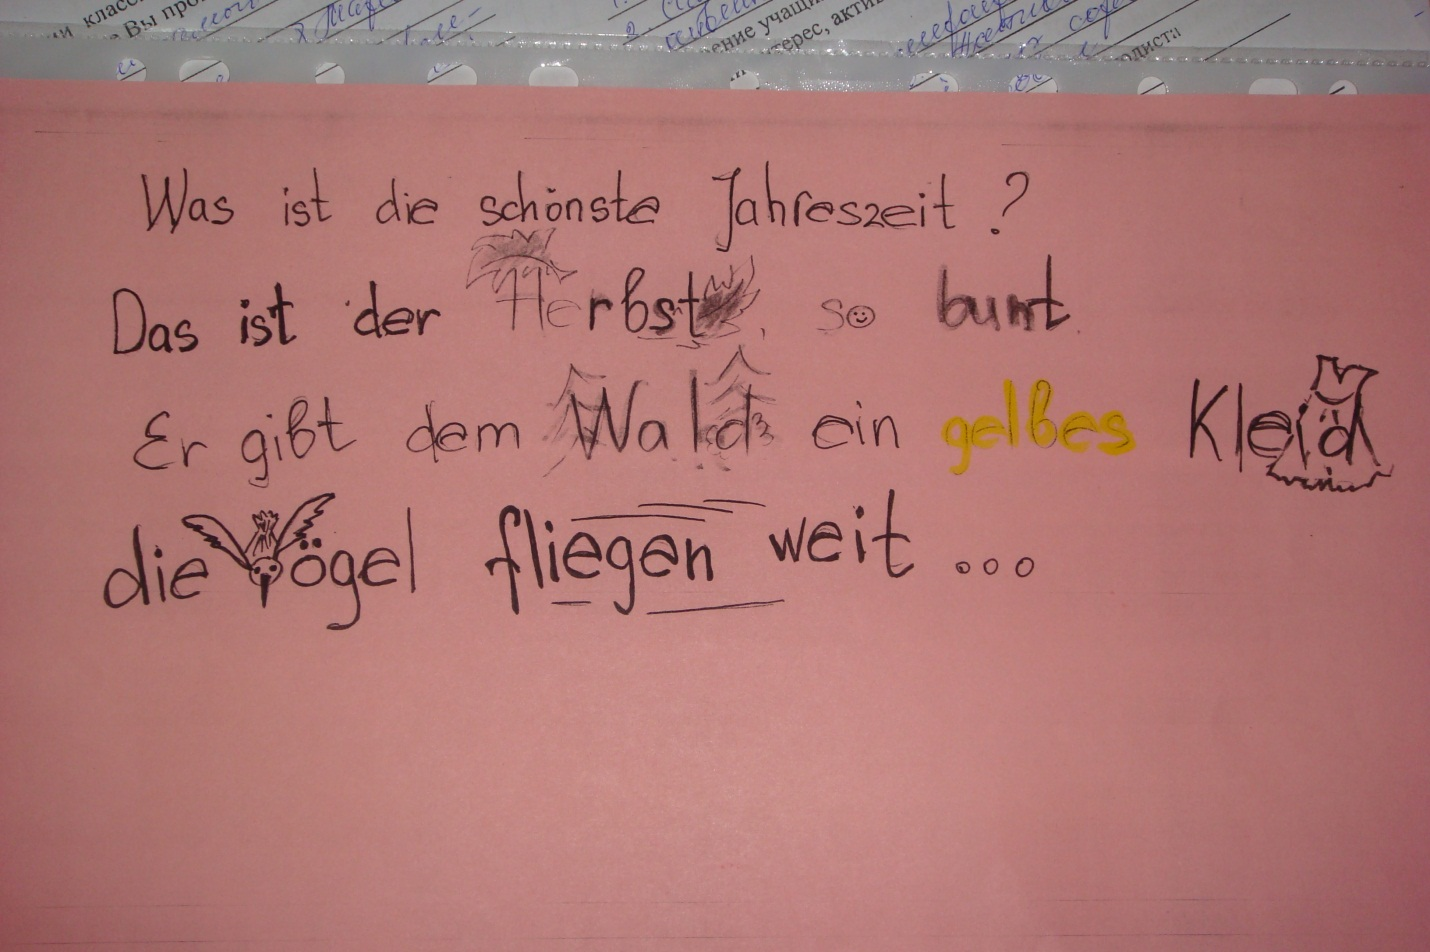 класс
Вы про
ение учащи
терес, актив
одиста
Was ist die schönste Jahreszeit ?
Das ist der Herbst, so bunt.
Er gibt dem Wald ein gelbes Kleid
die Vögel fliegen weit ...